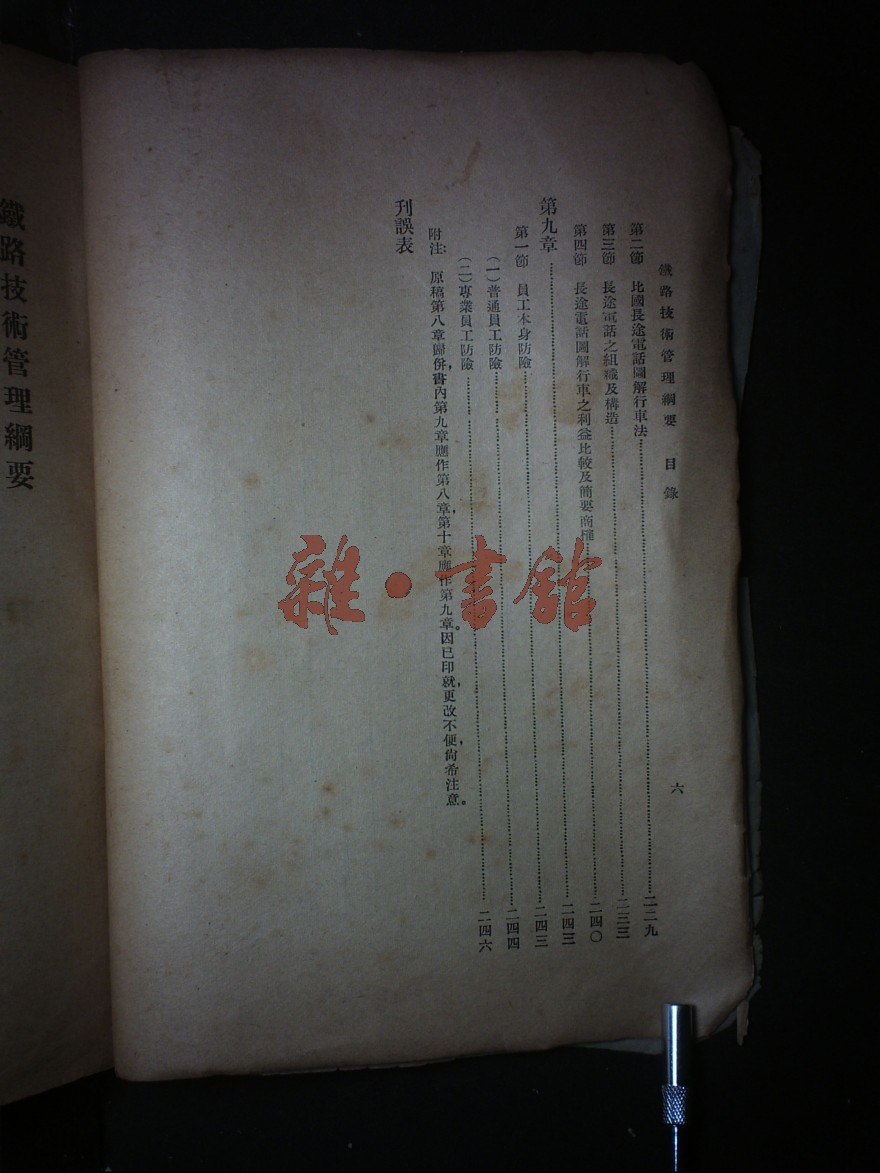 鐵路技術管理綱要 目錄 六
第二節 比國長途電話圖解行車法 二二九
第三節 長途電話之組織及構造 二三三
第四節 長途電話圖解行車之利益比較及簡要商榷 二四〇
第九章 二四三
第一節 員工本身防險 二四三
(一)普通員工防險 二四四
(二)專業員工防險 二四六
附注: 原稿第八章歸併,書內第九章應作第八章,第十章應作第九章。因已印就,更改不便,尚希注意。
刊誤表
鐵路技術管理綱要
雜·書館